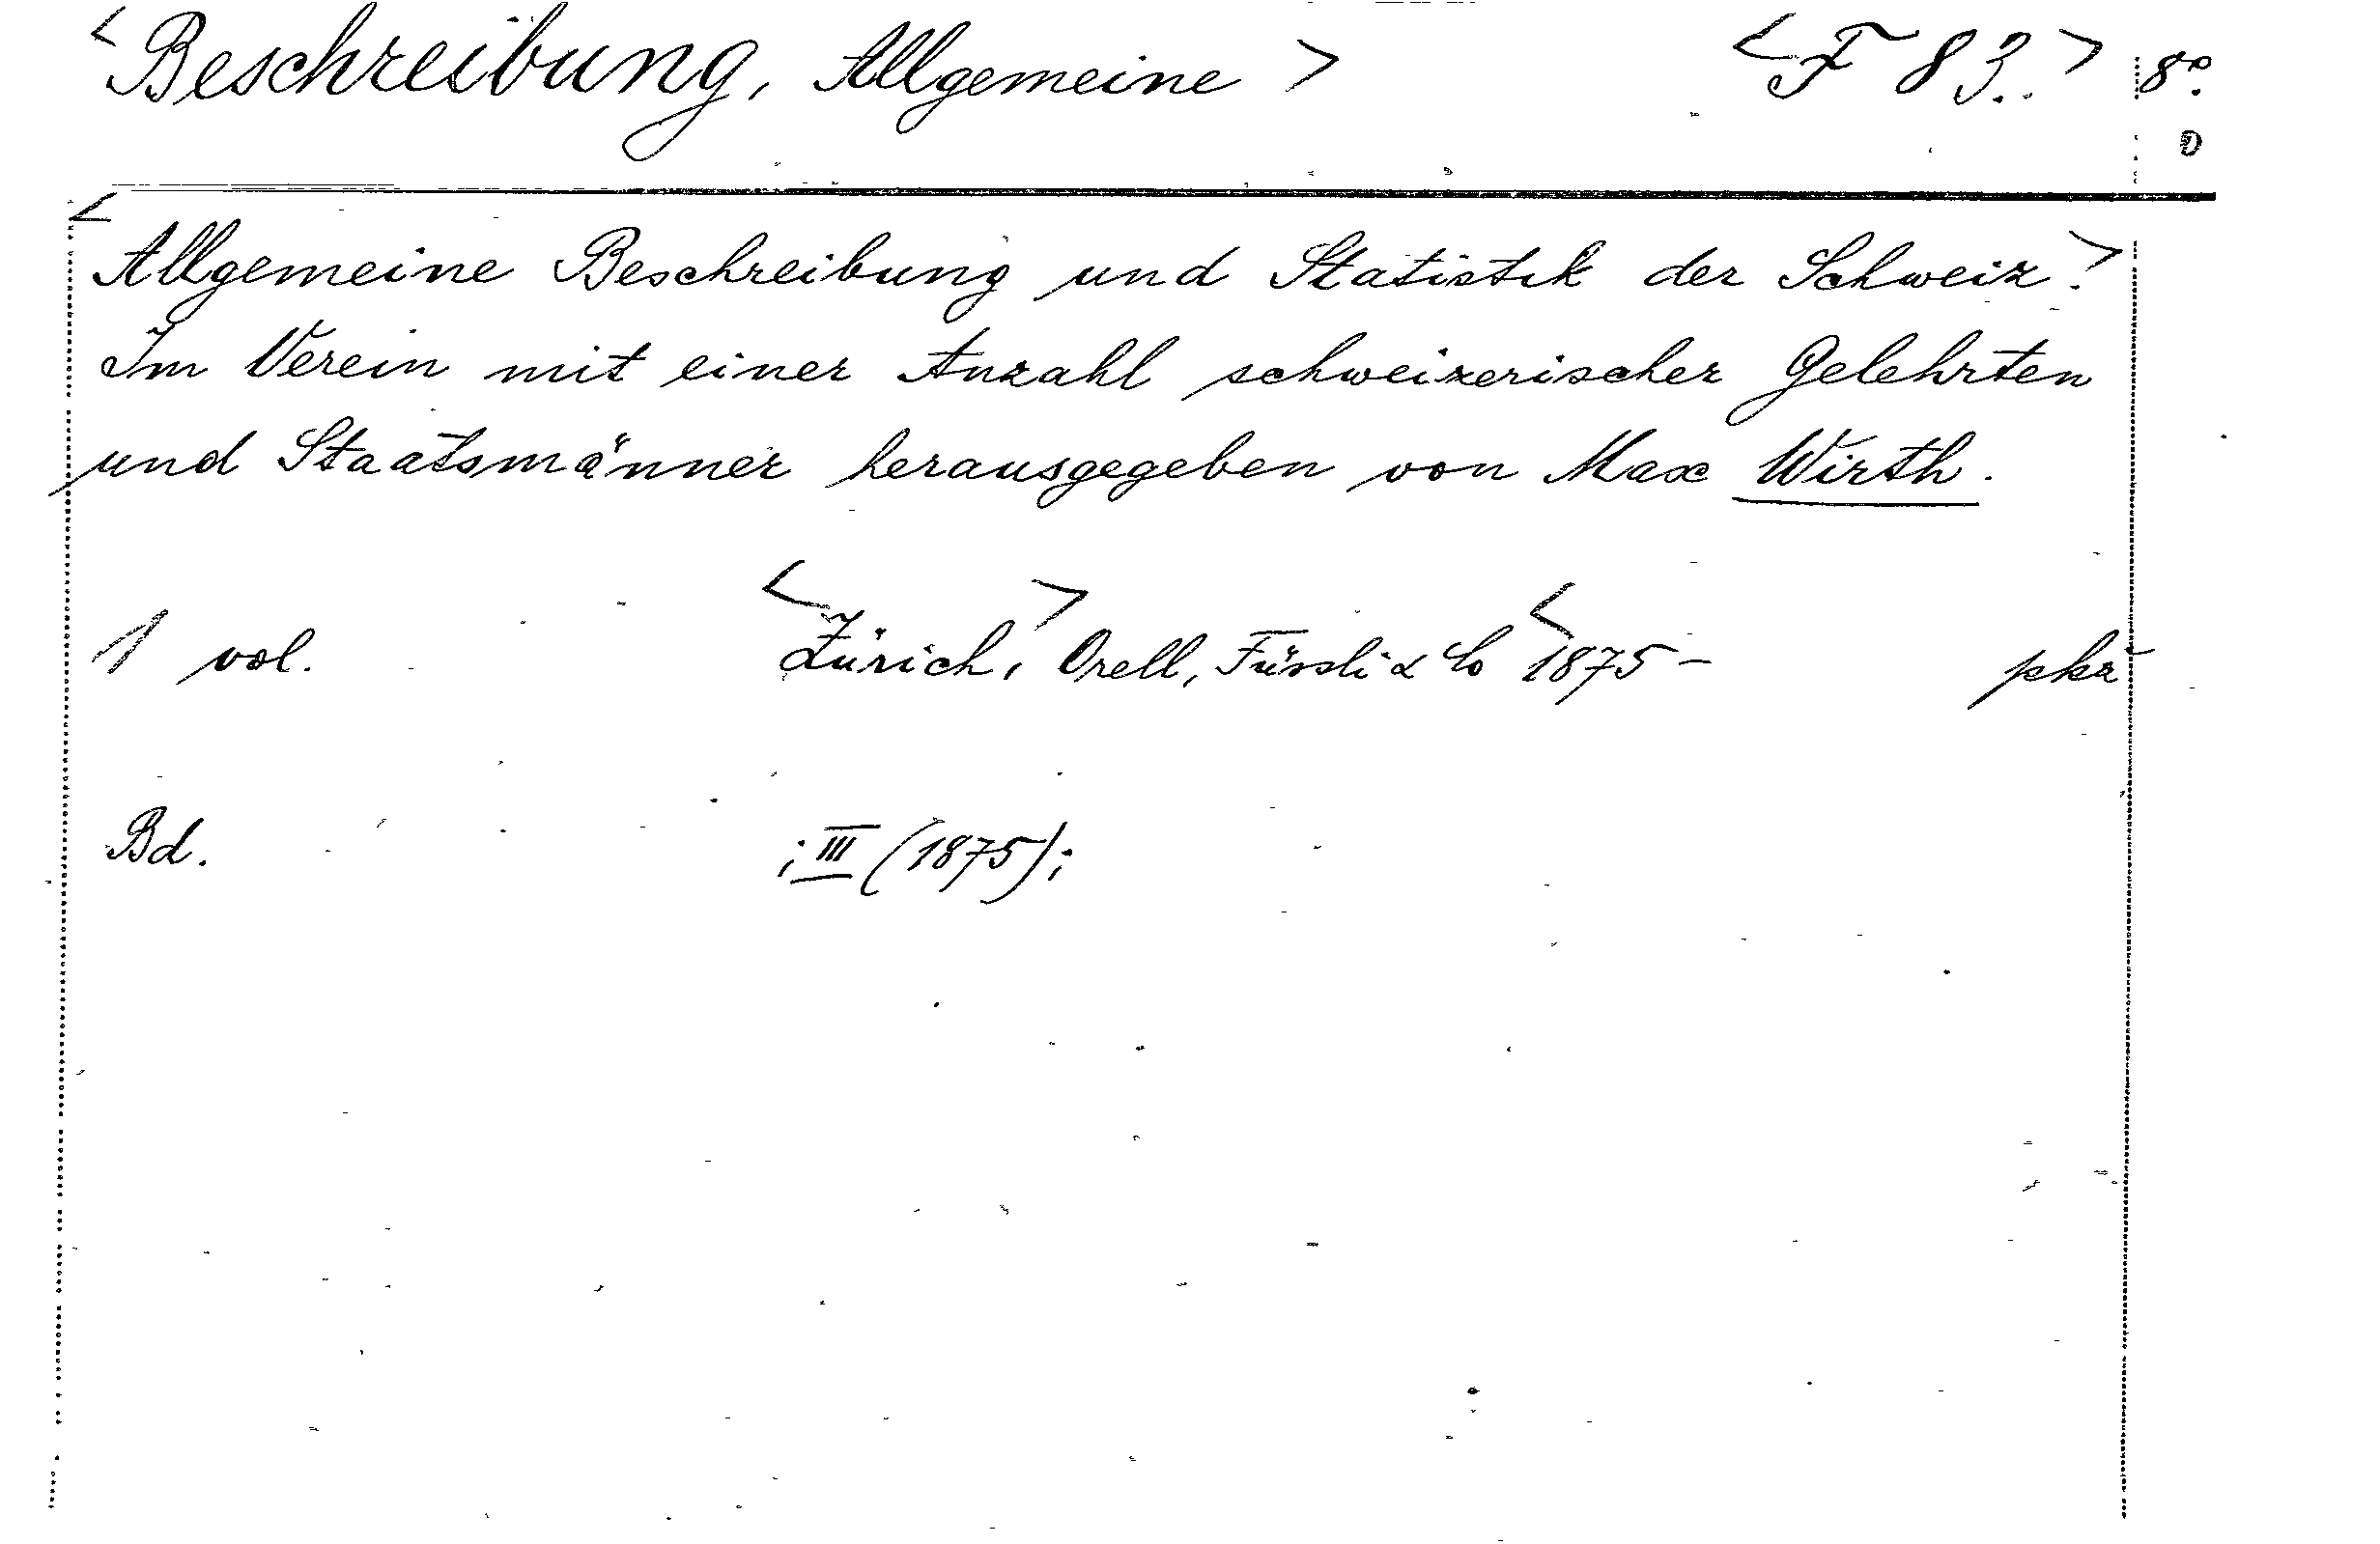 <Beschreibung, Allgemeine> <F 83.> 8º.
<Allgemeine Beschreibung und Statistik der Schweiz.>
Im Verein mit einer Anzahl schweizerischer Gelehrten
und Staatsmänner herausgegeben von Max Wirth.
1 vol. <Zürich,> Orell, Füssli & Co <1875 –
Bd. ; III (1875);